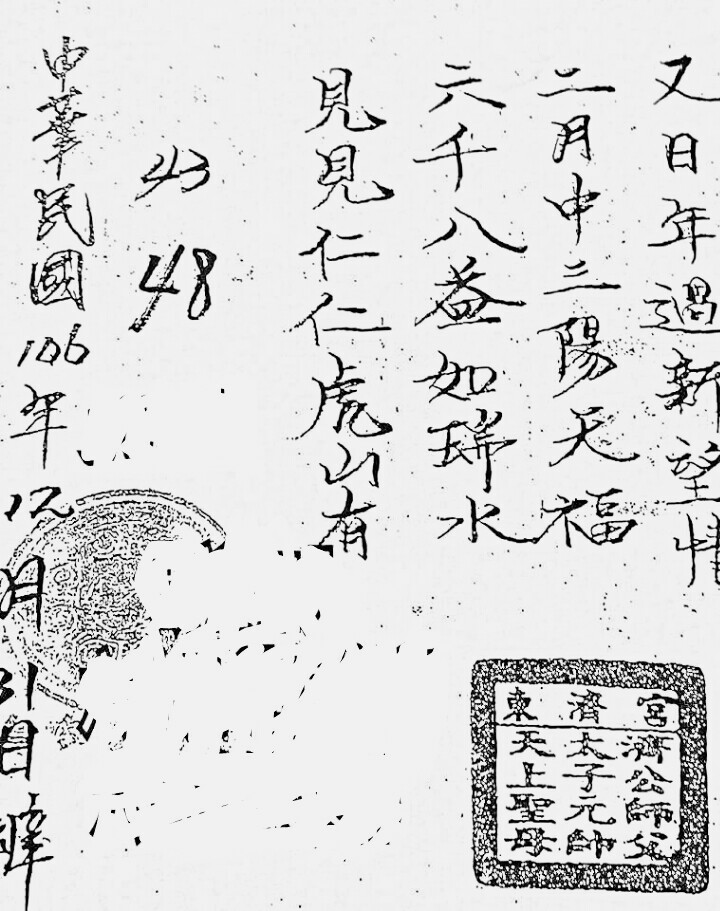 又日年過新望情
二月中三陽天福
六千八益如瑞水
見見仁仁虎山有
43
48
中華民國106年12月31日
東濟宮
濟公師父
太子元帥
天上聖母